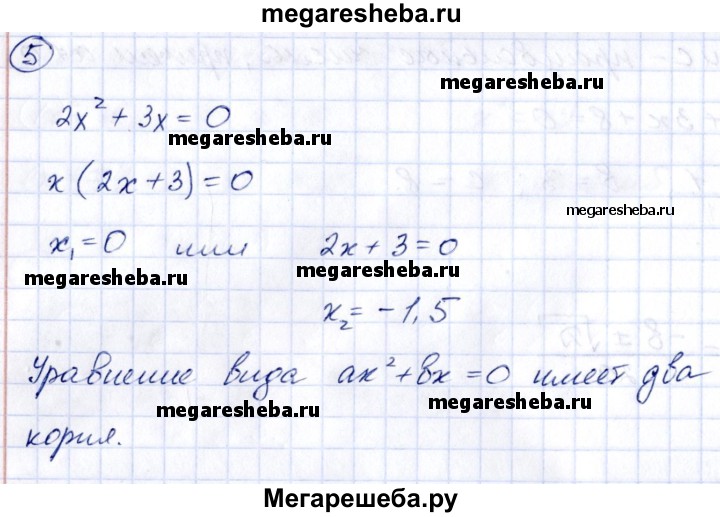 megaresheba.ru
5
2x² + 3x = 0
megaresheba.ru
x (2x + 3) = 0
megaresheba.ru
x₁ = 0 или 2x + 3 = 0
megaresheba.ru megaresheba.ru
x₂ = - 1,5
Уравнение вида ax² + bx = 0 имеет два
megaresheba.ru megaresheba.ru
корня.
Мегарешеба.ру